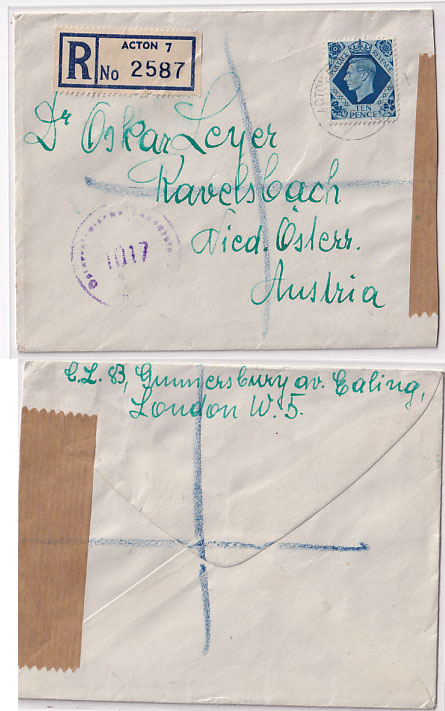 ACTON 7
R No 2587
ACTON
POSTAGE REVENUE
TEN PENCE
Dr Oskar Leyer
Ravelsbach
Nied. Österr.
Austria
1017
C.L. 83, Gunnersbury av. Ealing,
London W.5.